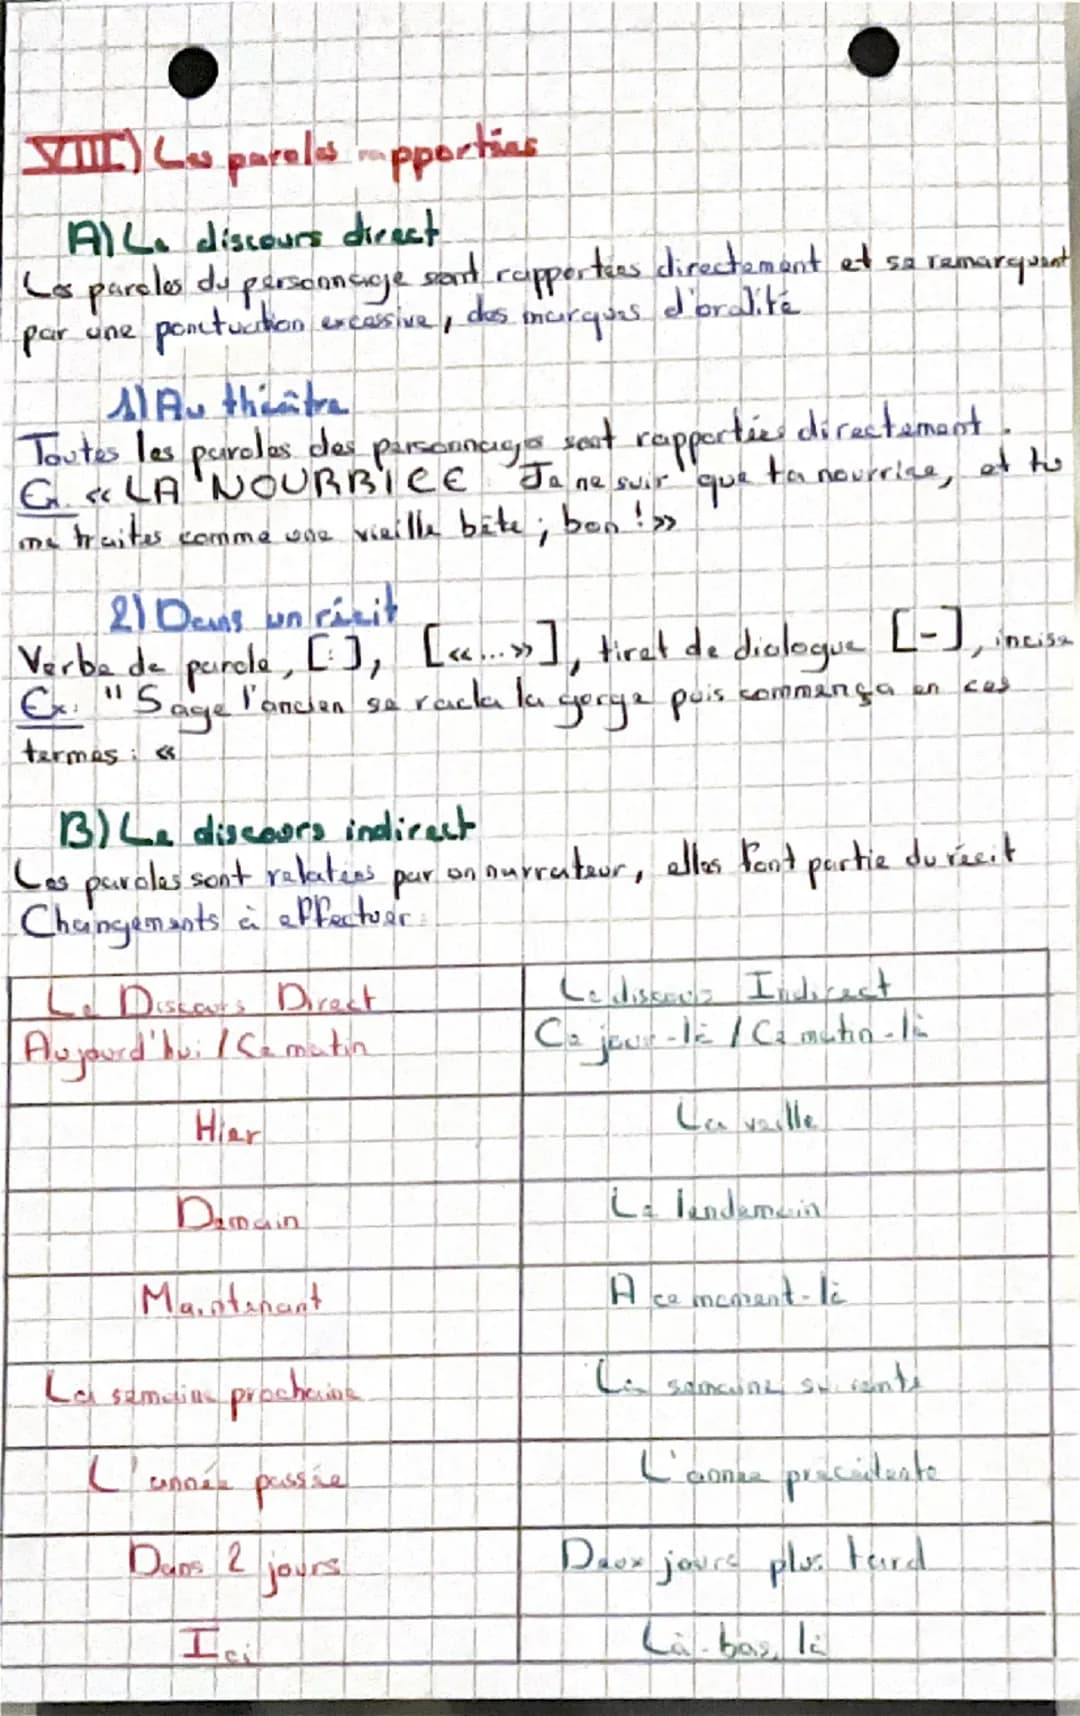 VIII) Les paroles rapportées
A) Le discours direct
Les paroles du personnage sont rapportées directement et se remarquent
par une ponctuation excessive, des marques d'oralité
1) Au théâtre
Toutes les paroles des personnages sont rapportées directement.
Ex. « LA NOURRICE Je ne suis que ta nourrice, et tu
me traites comme une vieille bête ; bon ! »
2) Dans un récit
Verbe de parole, [:], [«...»], tiret de dialogue [-], incise
Ex: "Sage l'ancien se racla la gorge puis commença en ces
termes : «
B) Le discours indirect
Les paroles sont relatées par un narrateur, elles font partie du récit
Changements à effectuer :
Le Discours Direct
Le discours Indirect
Aujourd'hui / Ce matin
Ce jour-là / Ce matin-là
Hier
La veille
Demain
Le lendemain
Maintenant
A ce moment-là
La semaine prochaine
La semaine suivante
L'année passée
L'année précédente
Dans 2 jours
Deux jours plus tard
Ici
Là-bas, là